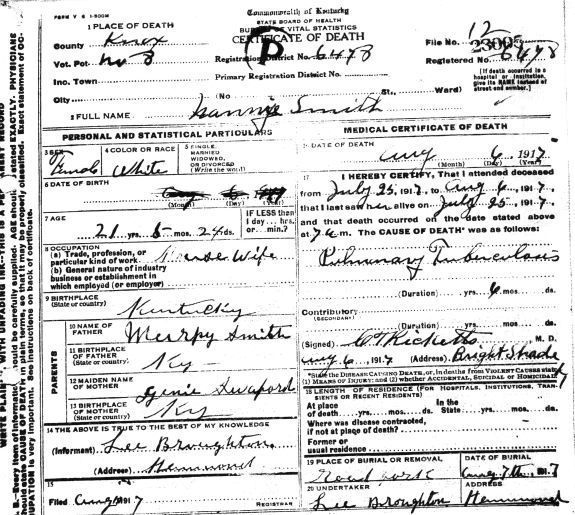 FORM V S 1-500M
Commonwealth of Kentucky
STATE BOARD OF HEALTH
BUREAU OF VITAL STATISTICS
CERTIFICATE OF DEATH
1 PLACE OF DEATH
County Knox
Vot. Pct No 8
Inc. Town
City
(No
St.,
Ward)
Registration District No. 6478
Primary Registration District No.
File No. 12
23095
Registered No. 6478
[If death occurred in a hospital or institution, give its NAME instead of street and number.]
2 FULL NAME Nannie Smith
PERSONAL AND STATISTICAL PARTICULARS
3 SEX
Female
4 COLOR OR RACE
White
5 SINGLE, MARRIED WIDOWED, OR DIVORCED
(Write the word)
6 DATE OF BIRTH
(Month) (Day) (Year)
7 AGE
21 yrs. 5 mos. 24 ds.
IF LESS than
1 day ... hrs.
or ... min.?
8 OCCUPATION
(a) Trade, profession, or
particular kind of work. House Wife
(b) General nature of industry
business or establishment in
which employed (or employer)
9 BIRTHPLACE
(State or country) Kentucky
PARENTS
10 NAME OF FATHER
Smith
11 BIRTHPLACE OF FATHER
(State or country) Ky
12 MAIDEN NAME OF MOTHER
Genie Swaford
13 BIRTHPLACE OF MOTHER
(State or country) Ky
14 THE ABOVE IS TRUE TO THE BEST OF MY KNOWLEDGE
(Informant) Lee Broughton
(Address) Hemmond
15
Filed Aug 1917
REGISTRAR
MEDICAL CERTIFICATE OF DEATH
16 DATE OF DEATH
Aug 6 1917
(Month) (Day) (Year)
17 I HEREBY CERTIFY, That I attended deceased
from July 25, 1917, to Aug 6, 1917,
that I last saw her alive on July 25, 1917,
and that death occurred on the date stated above
at 7 a m. The CAUSE OF DEATH* was as follows:
Pulmonary Tuberculosis
(Duration) yrs. 6 mos. ds.
Contributory
(SECONDARY)
(Duration) yrs. mos. ds.
(Signed) Ricketts M. D.
Aug 6, 1917 (Address) Bright Shade
*State the DISEASE CAUSING DEATH, or, in deaths from VIOLENT CAUSES state (1) MEANS OF INJURY; and (2) whether ACCIDENTAL, SUICIDAL OR HOMICIDAL
18 LENGTH OF RESIDENCE (FOR HOSPITALS, INSTITUTIONS, TRANSIENTS OR RECENT RESIDENTS)
At place of death yrs. mos. ds. In the State yrs. mos. ds.
Where was disease contracted,
if not at place of death?
Former or
usual residence
19 PLACE OF BURIAL OR REMOVAL
DATE OF BURIAL
Aug 7th, 1917
20 UNDERTAKER
Lee Broughton
ADDRESS
Hemmond